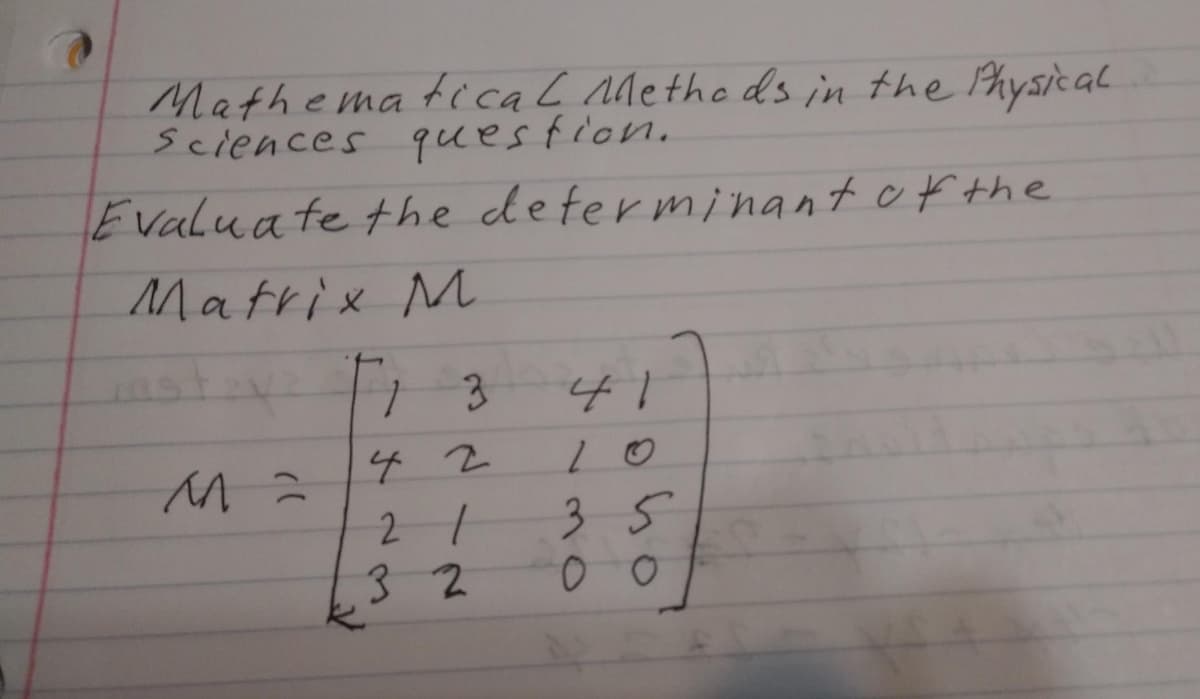 Mathematical Methods in the Physical
Sciences question.
Evaluate the determinant of the
Matrix M
1 3 4 1
M = 4 2 1 0
2 1 3 5
3 2 0 0